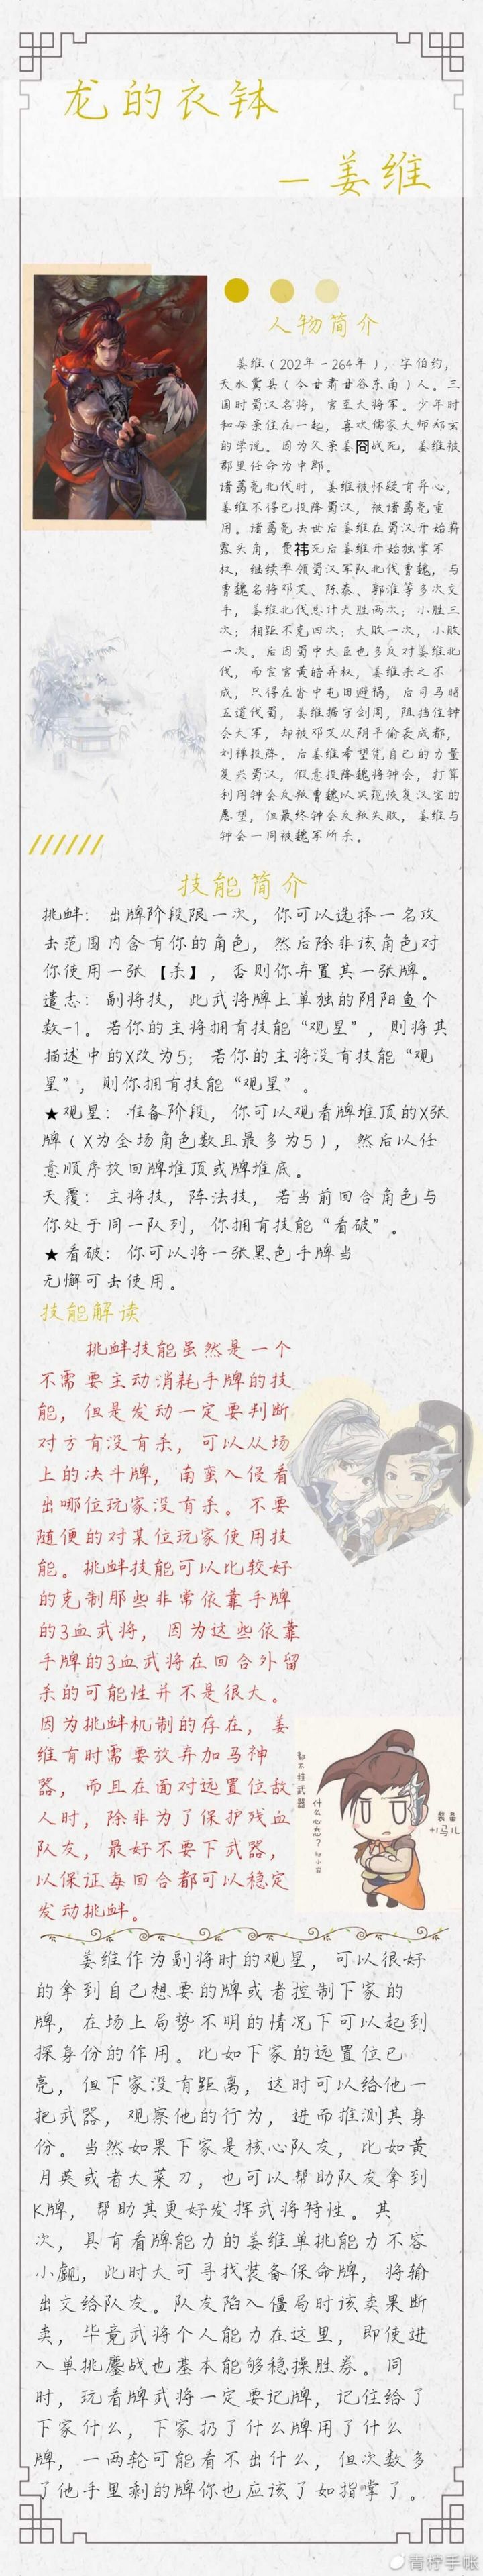 龙的衣钵
—姜维
人物简介
姜维（202年-264年），字伯约，
天水冀县（今甘肃甘谷东南）人。三
国时蜀汉名将，官至大将军。少年时
和母亲住在一起，喜欢儒家大师郑玄
的学说。因为父亲姜冏战死，姜维被
郡里任命为中郎。
诸葛亮北伐时，姜维被怀疑有异心，
姜维不得已投降蜀汉，被诸葛亮重
用。诸葛亮去世后姜维在蜀汉开始崭
露头角，费祎死后姜维开始独掌军
权，继续率领蜀汉军队北伐曹魏，与
曹魏名将邓艾、陈泰、郭淮等多次交
手，姜维北伐总计大胜两次；小胜三
次；相距不克四次；大败一次，小败
一次。后因蜀中大臣也多反对姜维北
伐，而宦官黄皓弄权，姜维杀之不
成，只得在沓中屯田避祸，后司马昭
五道伐蜀，姜维据守剑阁，阻挡住钟
会大军，却被邓艾从阴平偷袭成都，
刘禅投降。后姜维希望凭自己的力量
复兴蜀汉，假意投降魏将钟会，打算
利用钟会反叛曹魏以实现恢复汉室的
愿望，但最终钟会反叛失败，姜维与
钟会一同被魏军所杀。
技能简介
挑衅：出牌阶段限一次，你可以选择一名攻
击范围内含有你的角色，然后除非该角色对
你使用一张【杀】，否则你弃置其一张牌。
遗志：副将技，此武将牌上单独的阴阳鱼个
数-1。若你的主将拥有技能“观星”，则将其
描述中的X改为5；若你的主将没有技能“观
星”，则你拥有技能“观星”。
★观星：准备阶段，你可以观看牌堆顶的X张
牌（X为全场角色数且最多为5），然后以任
意顺序放回牌堆顶或牌堆底。
天覆：主将技，阵法技，若当前回合角色与
你处于同一队列，你拥有技能“看破”。
★看破：你可以将一张黑色手牌当
无懈可击使用。
技能解读
挑衅技能虽然是一个
不需要主动消耗手牌的技
能，但是发动一定要判断
对方有没有杀，可以从场
上的决斗牌，南蛮入侵看
出哪位玩家没有杀。不要
随便的对某位玩家使用技
能。挑衅技能可以比较好
的克制那些非常依靠手牌
的3血武将，因为这些依靠
手牌的3血武将在回合外留
杀的可能性并不是很大。
因为挑衅机制的存在，姜
维有时需要放弃加马神
器，而且在面对远置位敌
人时，除非为了保护残血
队友，最好不要下武器，
以保证每回合都可以稳定
发动挑衅。
都不挂武器
什么心态？
装备
+1马儿
姜维作为副将时的观星，可以很好
的拿到自己想要的牌或者控制下家的
牌，在场上局势不明的情况下可以起到
探身份的作用。比如下家的远置位已
亮，但下家没有距离，这时可以给他一
把武器，观察他的行为，进而推测其身
份。当然如果下家是核心队友，比如黄
月英或者大菜刀，也可以帮助队友拿到
K牌，帮助其更好发挥武将特性。其
次，具有看牌能力的姜维单挑能力不容
小觑，此时大可寻找装备保命牌，将输
出交给队友。队友陷入僵局时该卖果断
卖，毕竟武将个人能力在这里，即使进
入单挑鏖战也基本能够稳操胜券。同
时，玩看牌武将一定要记牌，记住给了
下家什么，下家扔了什么牌用了什么
牌，一两轮可能看不出什么，但次数多
了他手里剩的牌你也应该了如指掌了。
青柠手帐